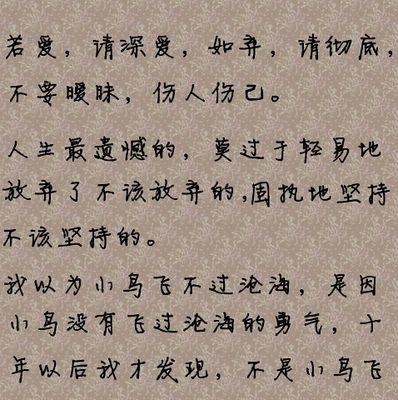 若爱，请深爱，如弃，请彻底，
不要暧昧，伤人伤己。
人生最遗憾的，莫过于轻易地
放弃了不该放弃的,固执地坚持
不该坚持的。
我以为小鸟飞不过沧海，是因
小鸟没有飞过沧海的勇气，十
年以后我才发现，不是小鸟飞